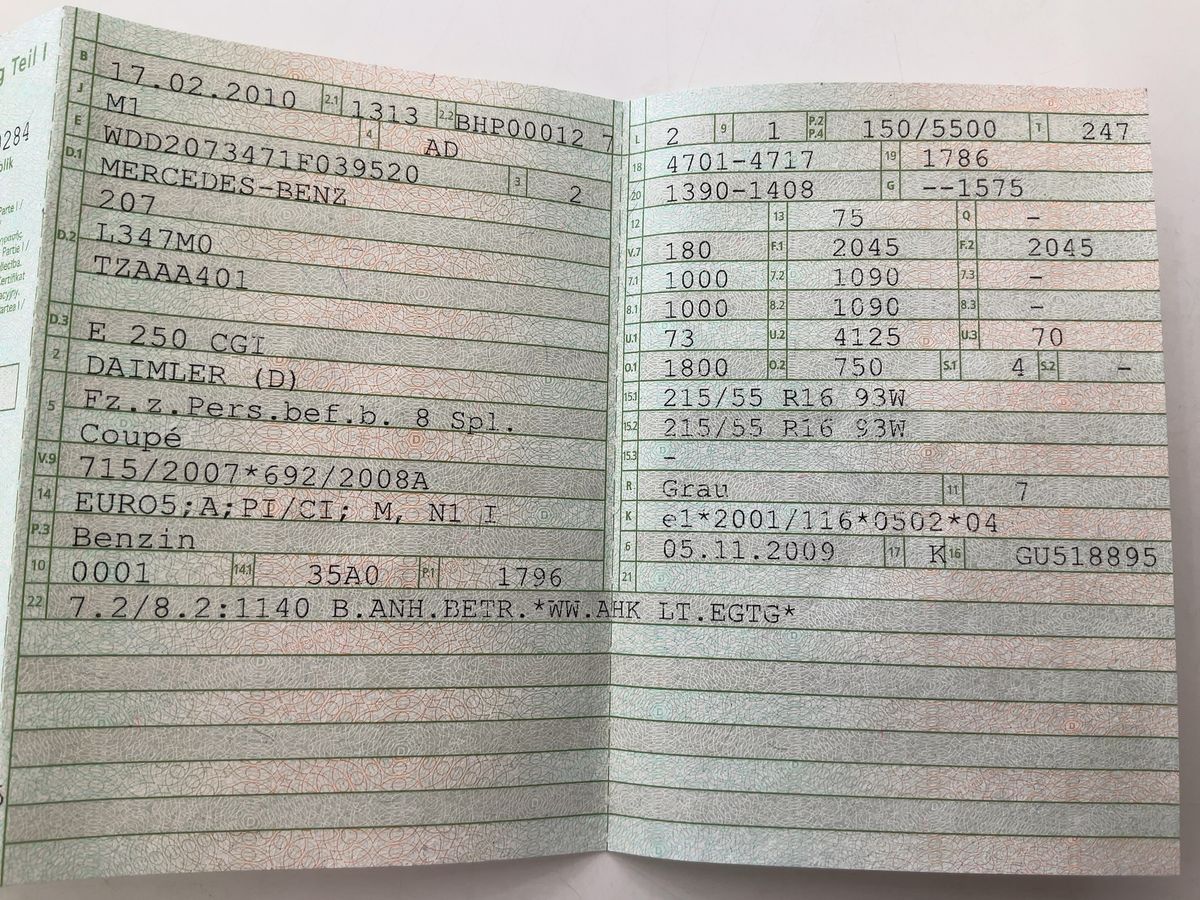 g Teil I
0284
olik
Parte I /
Partie I /
Certifikat
B 17.02.2010 2.1 1313 2.2 BHP00012 7
J M1 4 AD
E WDD2073471F039520 3 2
D.1 MERCEDES-BENZ
207
D.2 L347M0
TZAAA401
D.3 E 250 CGI
2 DAIMLER (D)
5 Fz.z.Pers.bef.b. 8 Spl.
Coupé
V.9 715/2007*692/2008A
14 EURO5;A;PI/CI; M, N1 I
P.3 Benzin
10 0001 14.1 35A0 P.1 1796
22 7.2/8.2:1140 B.ANH.BETR.*WW.AHK LT.EGTG*
L 2 9 1 P.2 P.4 150/5500 T 247
18 4701-4717 19 1786
20 1390-1408 G --1575
12 13 75 Q -
V.7 180 F.1 2045 F.2 2045
7.1 1000 7.2 1090 7.3 -
8.1 1000 8.2 1090 8.3 -
U.1 73 U.2 4125 U.3 70
O.1 1800 O.2 750 S.1 4 S.2 -
15.1 215/55 R16 93W
15.2 215/55 R16 93W
15.3 -
R Grau 11 7
K e1*2001/116*0502*04
6 05.11.2009 17 K 16 GU518895
21